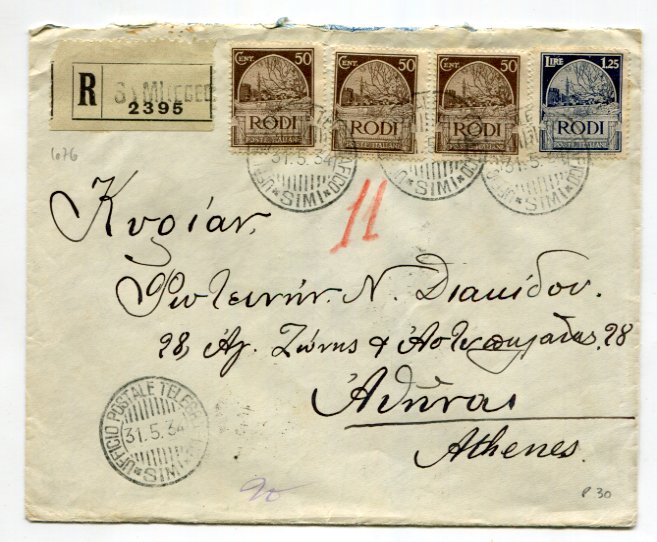 CENT. 50 CENT. 50 CENT. 50 LIRE 1,25
RODI RODI RODI RODI
POSTE ITALIANE POSTE ITALIANE POSTE ITALIANE POSTE ITALIANE
R
2395
31.5.34
SIMI SIMI SIMI
676
11
Κυρίαν
Φωτεινήν Ν. Διακίδου.
28, Ἁγ. Ζώνης & Ἀστυπαλαίας, 28
Ἀθήνας
Athenes
UFFICIO POSTALE TELEGRAFICO
31.5.34
SIMI
90
P 30